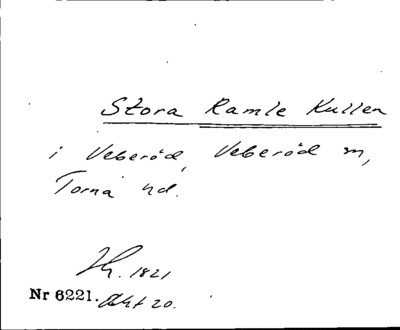 Stora Ramle Kullen
i Veberöd, Veberöd sn,
Torna hd.
1821
Nr 6221. Akt 20.